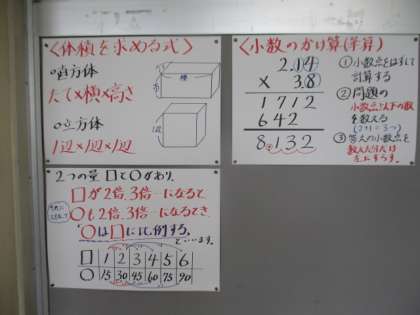 〈体積を求める式〉
○直方体
たて×横×高さ
横
○立方体
1辺×1辺×1辺
1辺
〈小数のかけ算(筆算)〉
2.14
× 3.8
1712
642
8.132
①小数点をはずして
計算する
②問題の
小数点以下の数
を数える
(2+1=3つ)
③答えの小数点を
数えた分だけ
左にずらす。
2つの量□と○があり、
□が2倍、3倍…になると
○も2倍、3倍…になるとき、
○は□に比例する。
といいます。
□ 1 2 3 4 5 6
○ 15 30 45 60 75 90